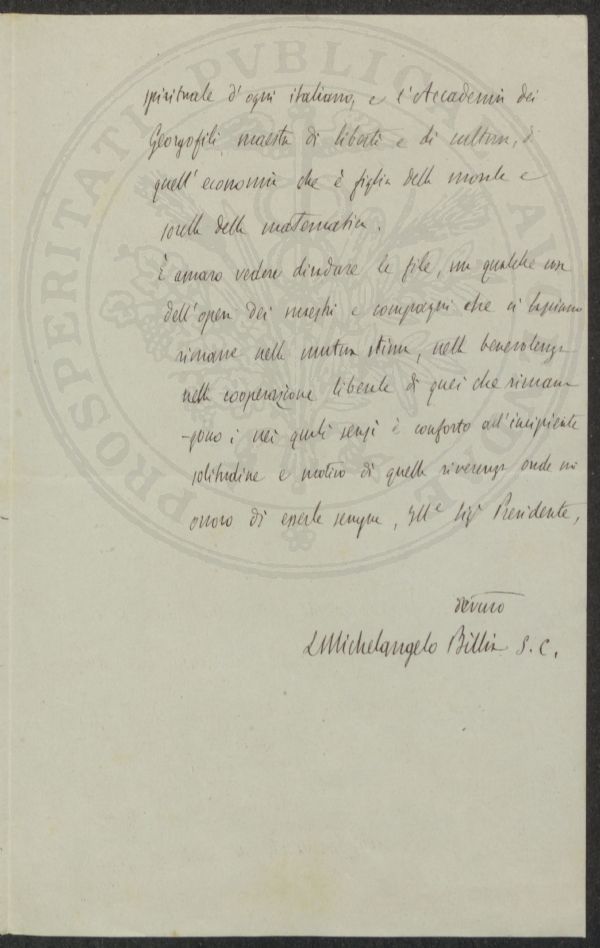 spirituale d'ogni italiano, e l'Accademia dei
Georgofili, maestra di libertà e di cultura, di
quell'economia che è figlia della morale e
sorella della matematica.
È amaro vedere diradare le file, ma qualche cosa
dell'opera dei maestri e compagni che ci lasciano
rimane nella mutua stima, nella benevolenza
nella cooperazione liberale di quei che riman
-gono; nei quali sensi è conforto all'incipiente
solitudine e motivo di quella riverenza onde mi
onoro di esserle sempre, Ille Sigr Presidente,
devmo
LMichelangelo Billia S.C.
PROSPERITATI PVBLICAE AVGENDAE